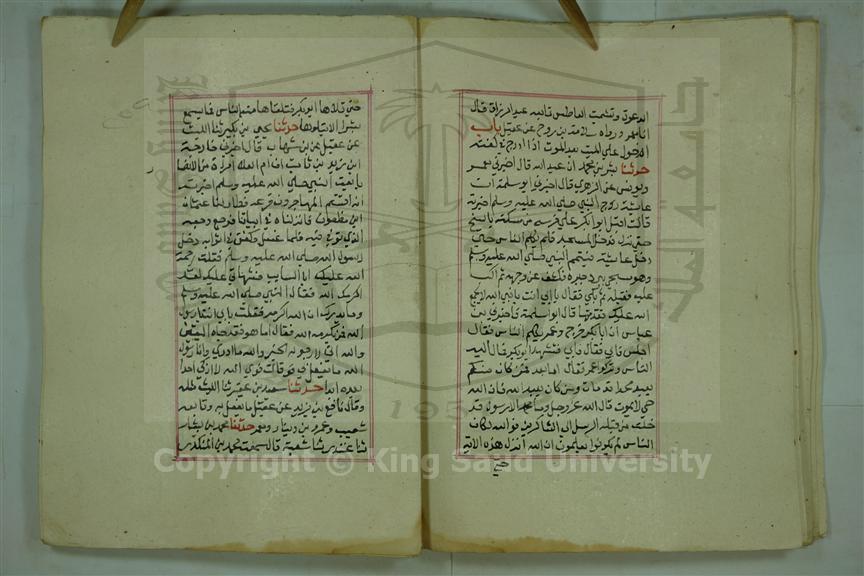 الدعوة وتشميت العاطس تابعه عبد الرزاق قال
انا معمر ورواه سلامة بن روح عن عقيل باب
الدخول على الميت بعد الموت اذا ادرج في كفنه
حدثنا بشر بن محمد ان عبد الله قال اخبرني معمر
ويونس عن الزهري قال اخبرني ابو سلمة ان
عائشة زوج النبي صلى الله عليه وسلم اخبرته
قالت اقبل ابو بكر على فرسه من مسكنه بالسنح
حتى نزل فدخل المسجد فلم يكلم الناس حتى
دخل على عائشة فتيمم النبي صلى الله عليه وسلم
وهو مسجى ببرد حبرة فكشف عن وجهه ثم اكب
عليه فقبله ثم بكى فقال بابي انت يا نبي الله لا يجمع
الله عليك فقد متها قال ابو سلمة فاخبرني بن
عباس ان ابا بكر خرج وعمر يكلم الناس فقال
اجلس فابى فقال فابى فتشهد ابو بكر فمال اليه
الناس وتركوا عمر فقال اما بعد فمن كان منكم
يعبد محمدا قد مات ومن كان يعبد الله فان الله
حي لا يموت قال الله عز وجل وما محمد الا رسول قد
خلت من قبله الرسل الى الشاكرين فوالله لكان
الناس لم يكونوا يعلمون ان الله انزل هذه الاية
حتى
حتى تلاها ابو بكر فتلقاها منه الناس فما يسمع
بشر الا يتلوها حدثنا يحيى بن بكير ثنا الليث
عن عقيل عن بن شهاب قال اخبرني خارجة
ابن زيد بن ثابت ان ام العلاء امراة من الانصار
بايعت النبي صلى الله عليه وسلم اخبرته
انه اقتسم المهاجرون قرعة فطار لنا عثمان
ابن مظعون فانزلناه في ابياتنا فوجع وجعه
الذي توفي فيه فلما غسل وكفن في اثوابه دخل
رسول الله صلى الله عليه وسلم فقلت رحمة
الله عليك ابا السايب فشهادتي عليك لقد
اكرمك الله فقال النبي صلى الله عليه وسلم
وما يدريك ان الله اكرمه فقلت بابي انت يا رسول
الله فمن يكرمه الله فقال اما هو فقد جاه اليقين
والله اني لارجو له الخير والله ما ادري وانا رسول
الله ما يفعل بي قالت فوالله لا ازكي احدا
بعده ابدا حدثنا سعيد بن عفير ثنا الليث مثله
وقال نافع بن يزيد عن عقيل ما يفعل به وتابعه
شعيب وعمرو بن دينار ومعمر حدثنا محمد بن بشار
ثنا غندر ثنا شعبة قال سمعت محمد بن المنكدر
جامعة الملك سعود
1957
Copyright © King Saud University